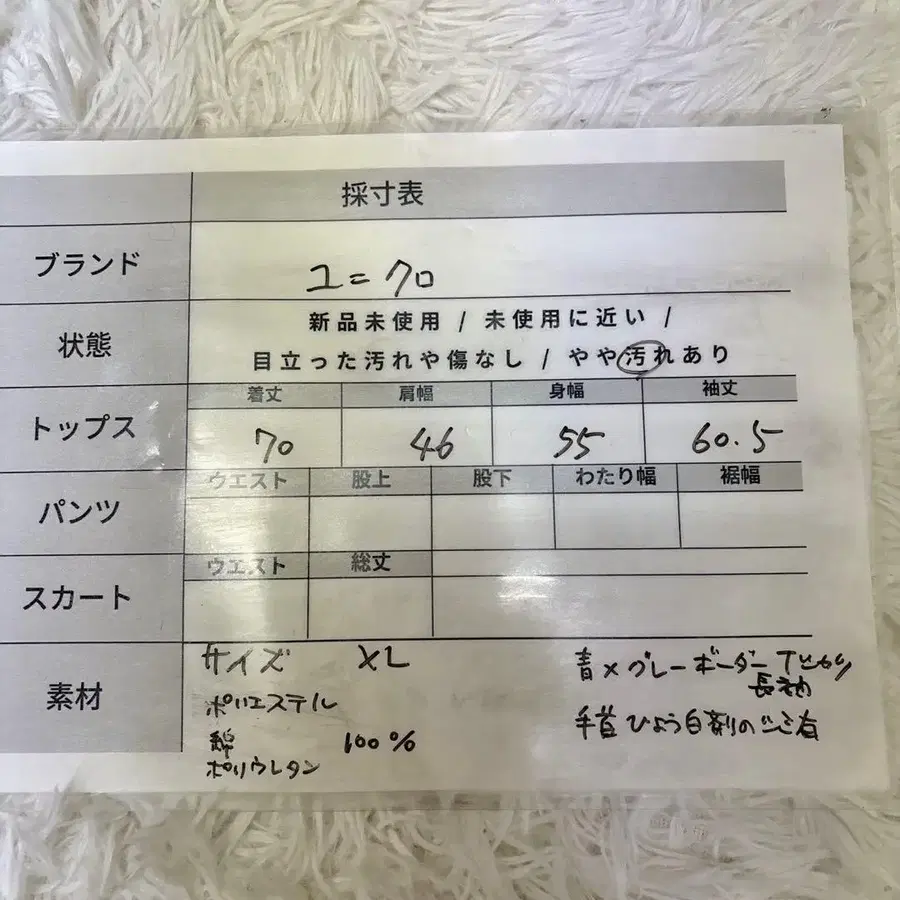 採寸表
ブランド ユニクロ
状態 新品未使用 / 未使用に近い /
目立った汚れや傷なし / やや汚れあり
トップス 着丈 肩幅 身幅 袖丈
70 46 55 60.5
パンツ ウエスト 股上 股下 わたり幅 裾幅
スカート ウエスト 総丈
素材 サイズ XL
ポリエステル
綿 100%
ポリウレタン
青×グレーボーダー Tシャツ
長袖
手首ひょう白剤のシミ有